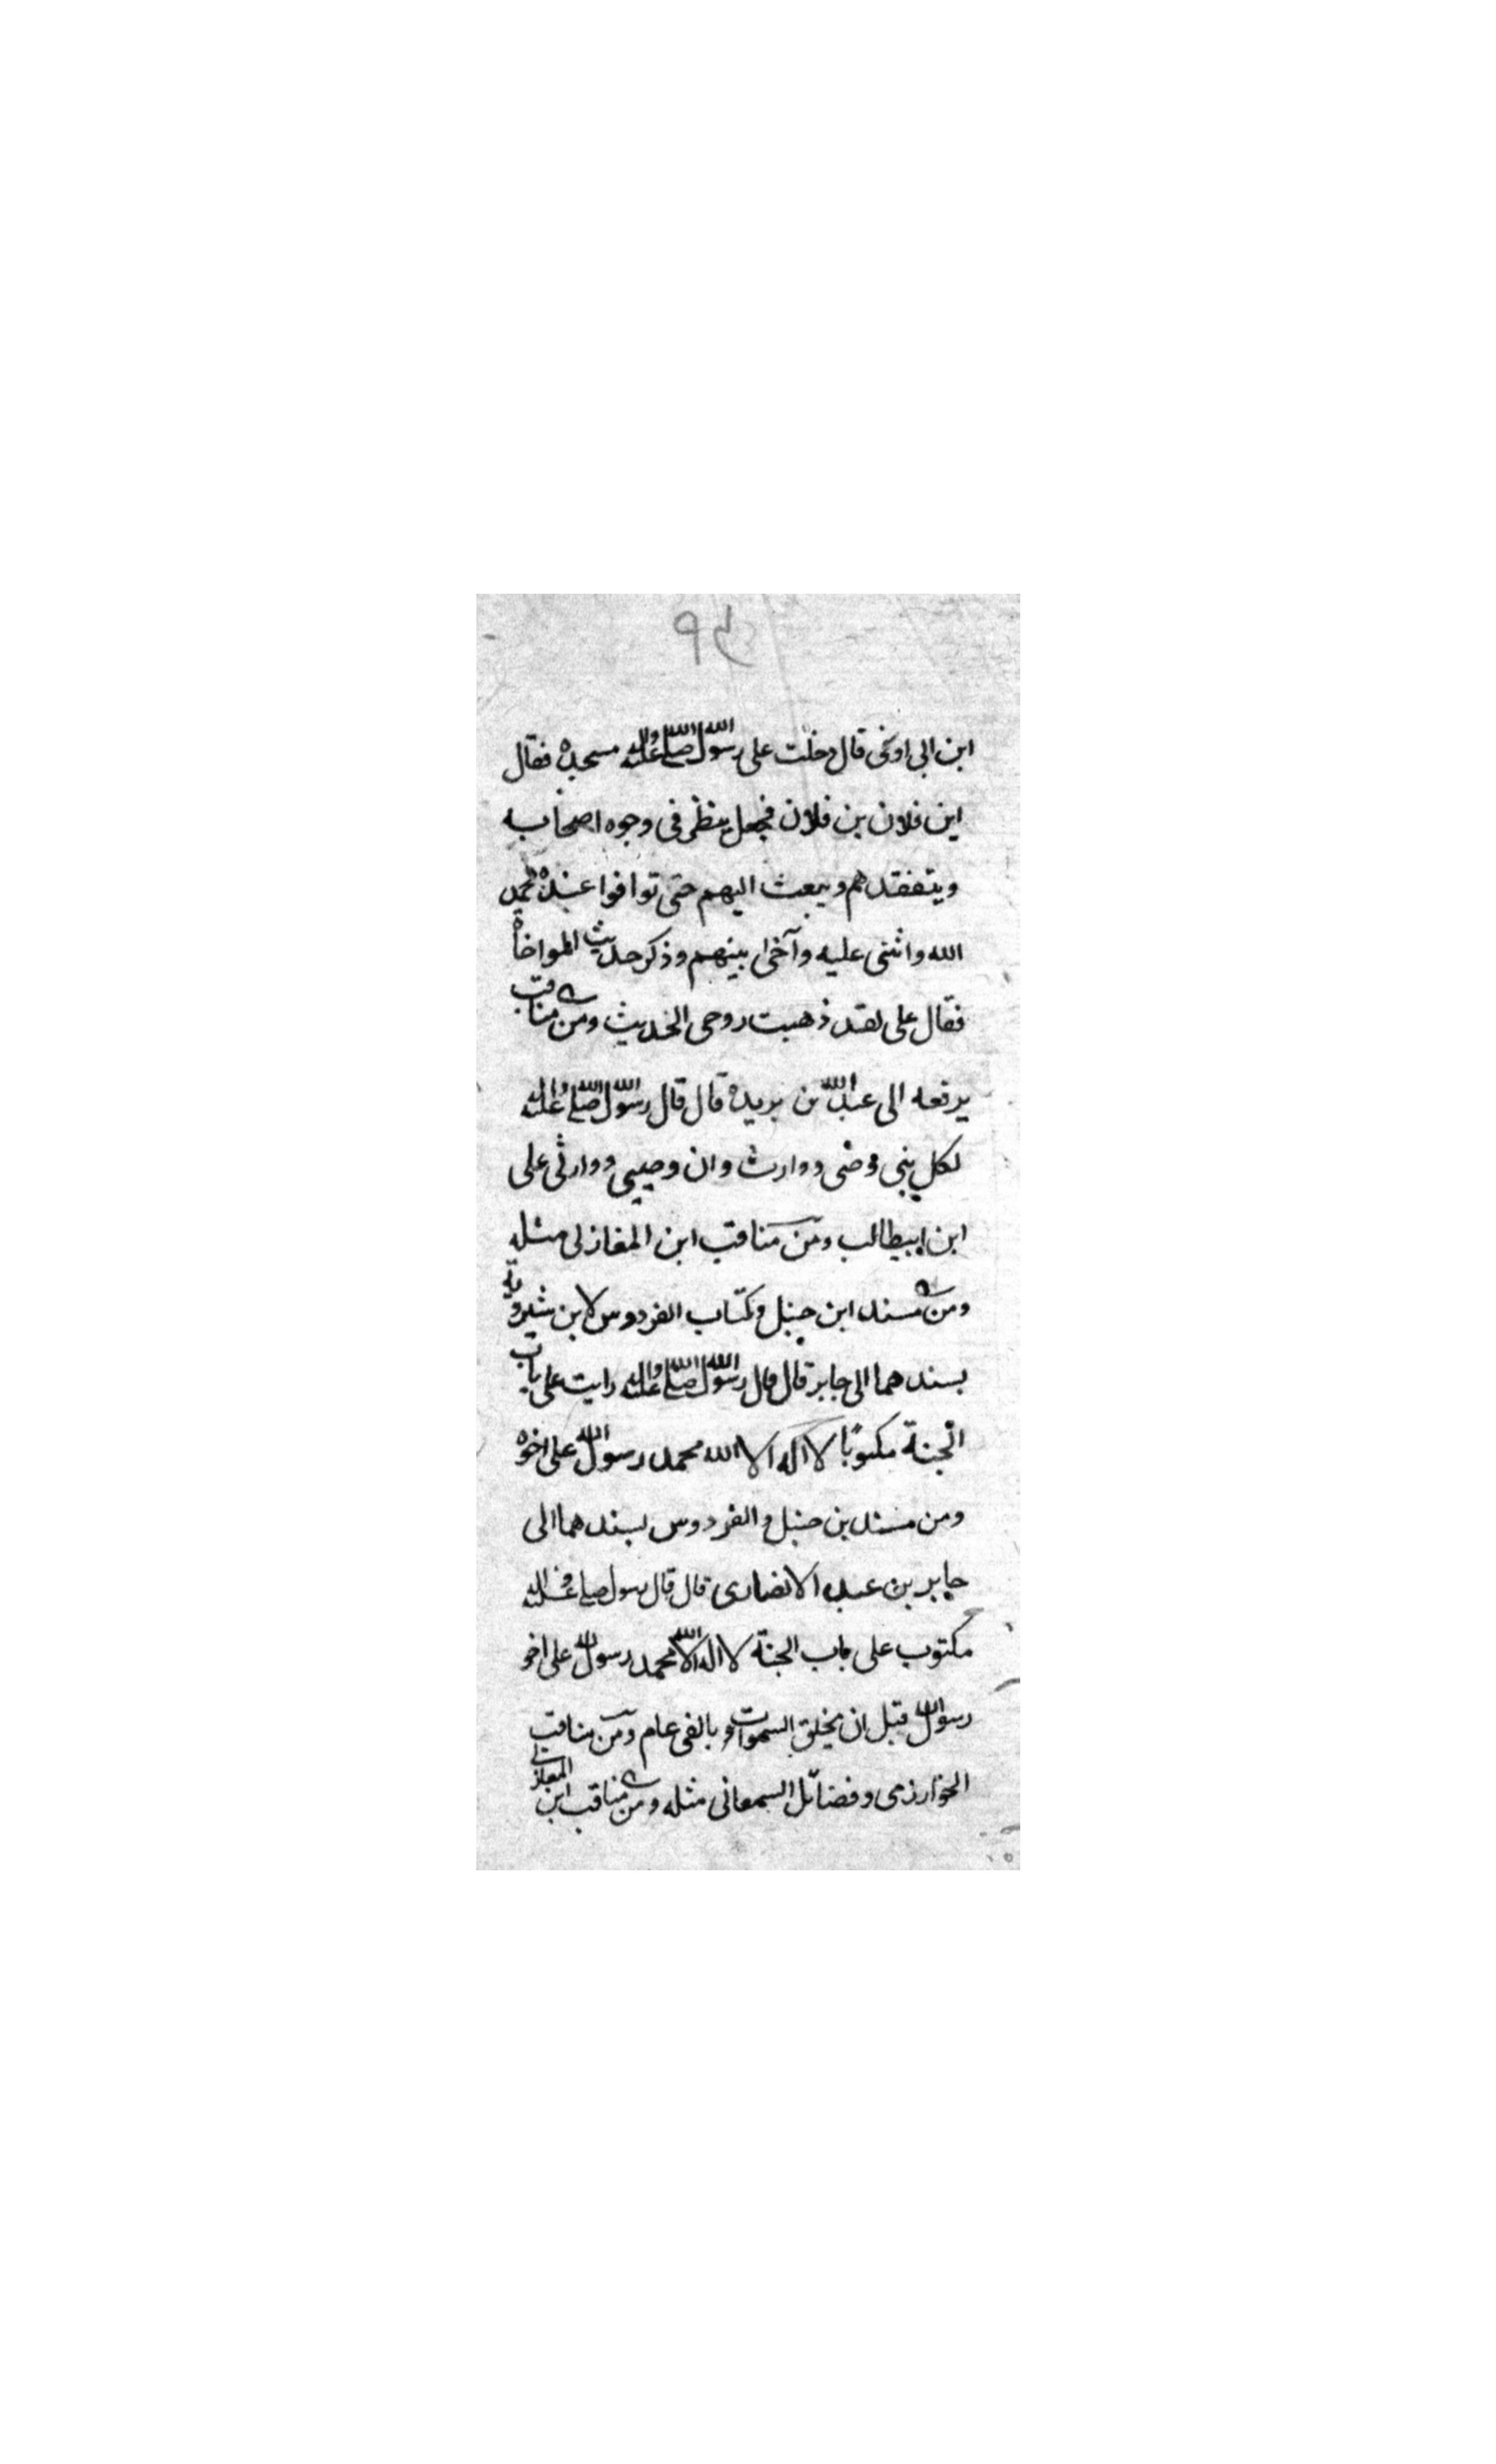 ابن ابى اوفى قال دخلت على رسول الله صلى الله عليه واله مسجده فقال
اين فلان بن فلان فجعل ينظر فى وجوه اصحابه
ويتفقدهم ويبعث اليهم حتى توافوا عنده فحمد
الله واثنى عليه وآخى بينهم وذكر حديث المواخاة
فقال على لقد ذهبت روحى الحديث ومن مناقب
يرفعه الى عبد الله بن بريده قال قال رسول الله صلى الله عليه واله
لكل نبى وصى ووارث وان وصيى ووارثى على
ابن ابيطالب ومن مناقب ابن المغازلى مثله
ومن مسند ابن حنبل وكتاب الفردوس لابن شيرويه
بسندهما الى جابر قال قال رسول الله صلى الله عليه واله رايت على باب
الجنة مكتوبًا لا اله الا الله محمد رسول الله على اخوه
ومن مسند بن حنبل والفردوس بسندهما الى
جابر بن عبد الانصارى قال قال رسول صلى عليه واله
مكتوب على باب الجنة لا اله الا الله محمد رسول الله على اخو
رسول الله قبل ان يخلق السموات بالفى عام ومن مناقب
الخوارزمى وفضائل السمعانى مثله ومن مناقب ابن المغازلى